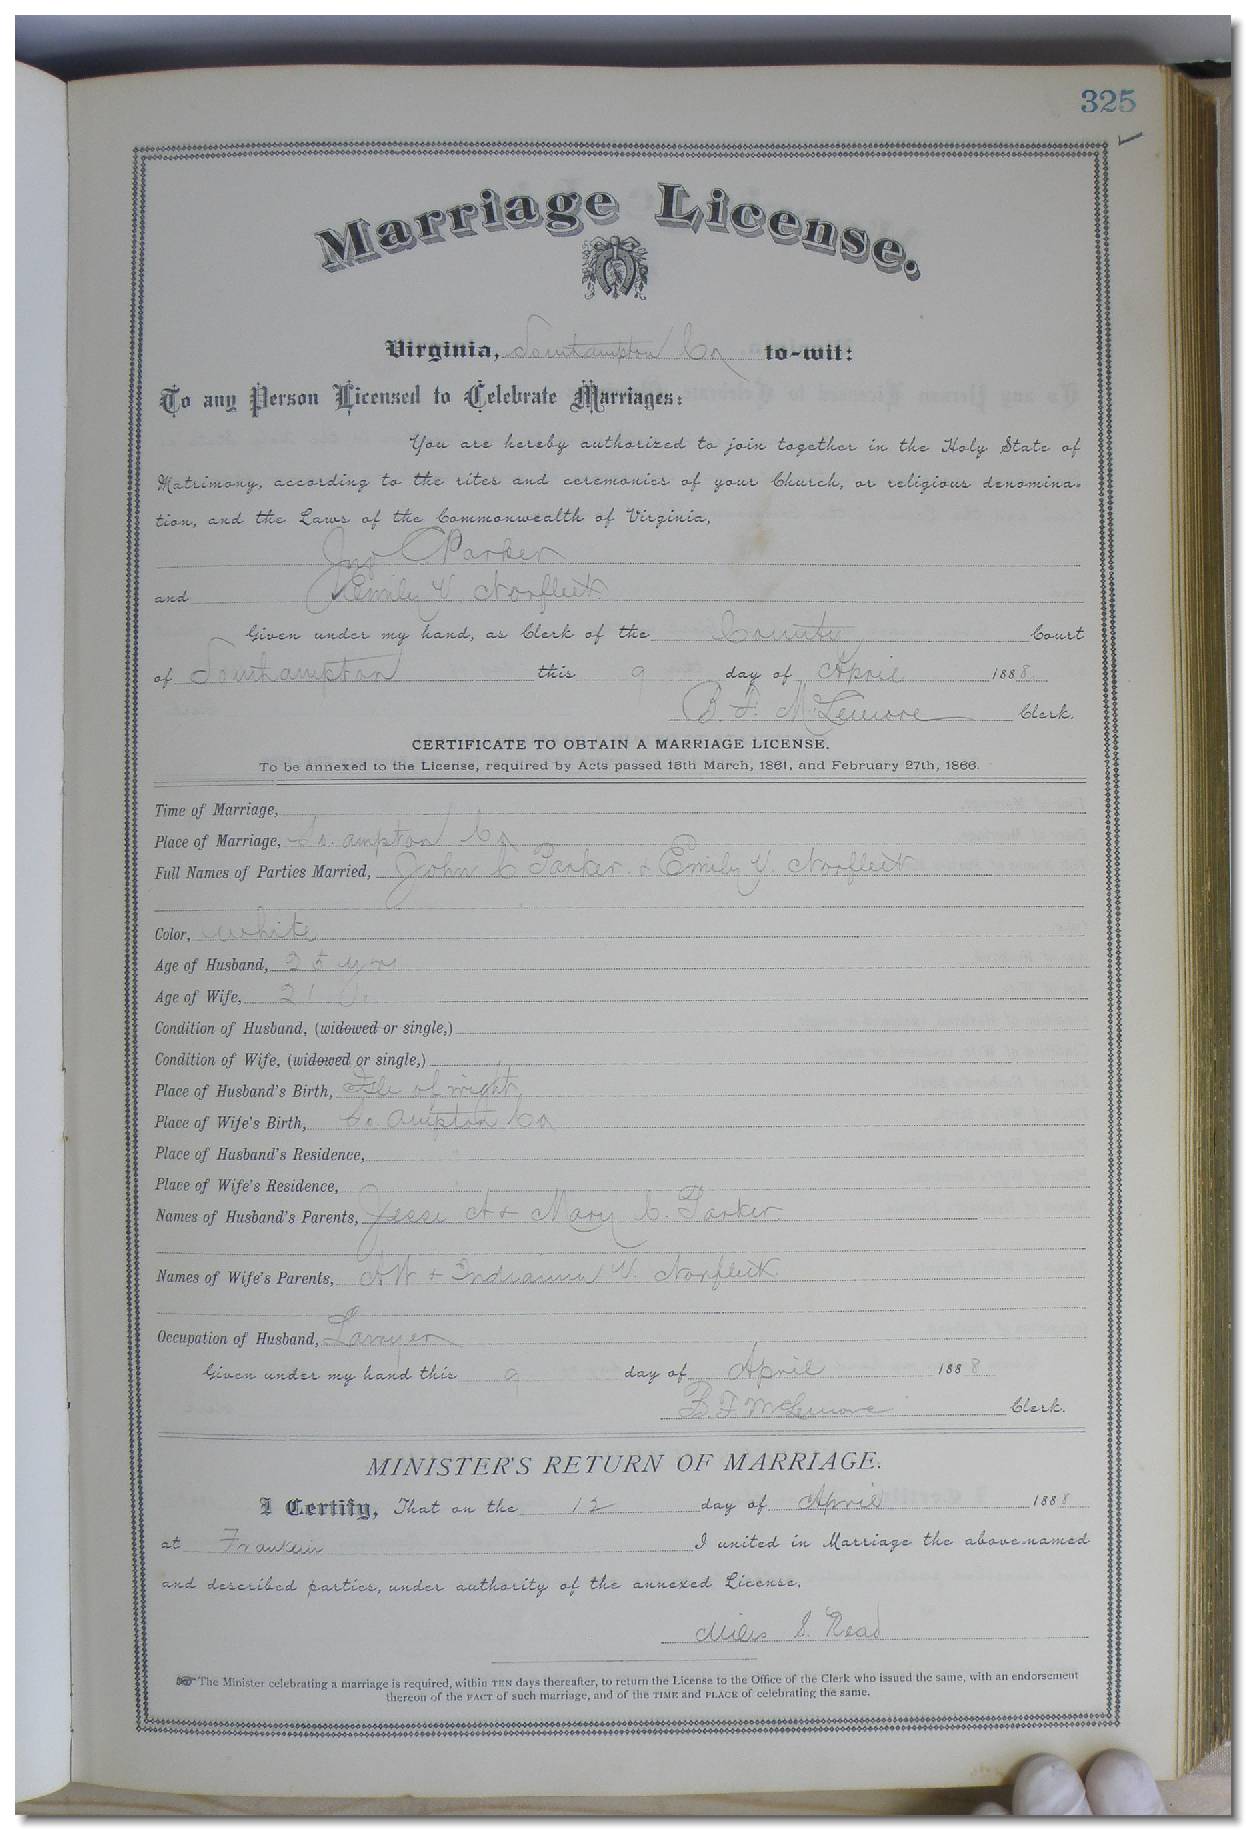 325
Marriage License.
Virginia, Southampton Co to-wit:
To any Person Licensed to Celebrate Marriages:
You are hereby authorized to join together in the Holy State of
Matrimony, according to the rites and ceremonies of your Church, or religious denomina-
tion, and the Laws of the Commonwealth of Virginia,
Jno C Parker
and Emily V. Norfleet
Given under my hand, as Clerk of the County Court
of Southampton this 9 day of April 1888
B. F. McLemore Clerk.
CERTIFICATE TO OBTAIN A MARRIAGE LICENSE.
To be annexed to the License, required by Acts passed 15th March, 1861, and February 27th, 1866.
Time of Marriage,
Place of Marriage, So.ampton Co
Full Names of Parties Married, John C Parker & Emily V. Norfleet
Color, White
Age of Husband, 25 yrs
Age of Wife, 21
Condition of Husband, (widowed or single,)
Condition of Wife, (widowed or single,)
Place of Husband's Birth, Isle of Wight
Place of Wife's Birth, So.ampton Co
Place of Husband's Residence,
Place of Wife's Residence,
Names of Husband's Parents, Jesse A & Mary C. Parker
Names of Wife's Parents, A W & Indianna V. Norfleet
Occupation of Husband, Lawyer
Given under my hand this 9 day of April 1888
B. F. McLemore Clerk.
MINISTER'S RETURN OF MARRIAGE.
I Certify, That on the 12 day of April 1888
at Franklin I united in Marriage the above-named
and described parties, under authority of the annexed License.
Miles S. Read
The Minister celebrating a marriage is required, within TEN days thereafter, to return the License to the Office of the Clerk who issued the same, with an endorsement
thereon of the FACT of such marriage, and of the TIME and PLACE of celebrating the same.